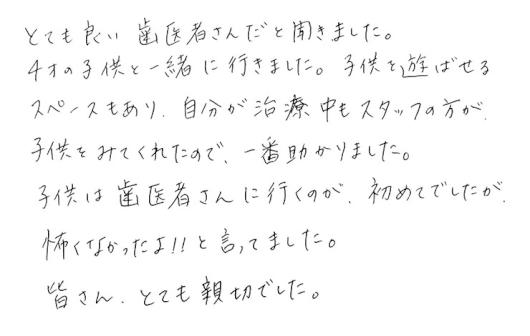 とても良い歯医者さんだと聞きました。
4才の子供と一緒に行きました。子供を遊ばせる
スペースもあり、自分が治療中もスタッフの方が、
子供をみてくれたので、一番助かりました。
子供は歯医者さんに行くのが、初めてでしたが、
怖くなかったよ!!と言ってました。
皆さん、とても親切でした。